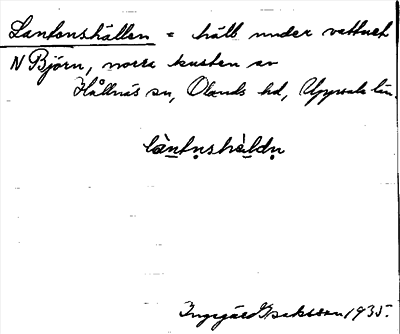 Lantonshällen = häll under vattnet
N Björn, norra kusten av
Hållnäs sn, Olands hd, Uppsala län.
làntn̥shæ̀ldn̥
Ingegärd Isaksson 1935.